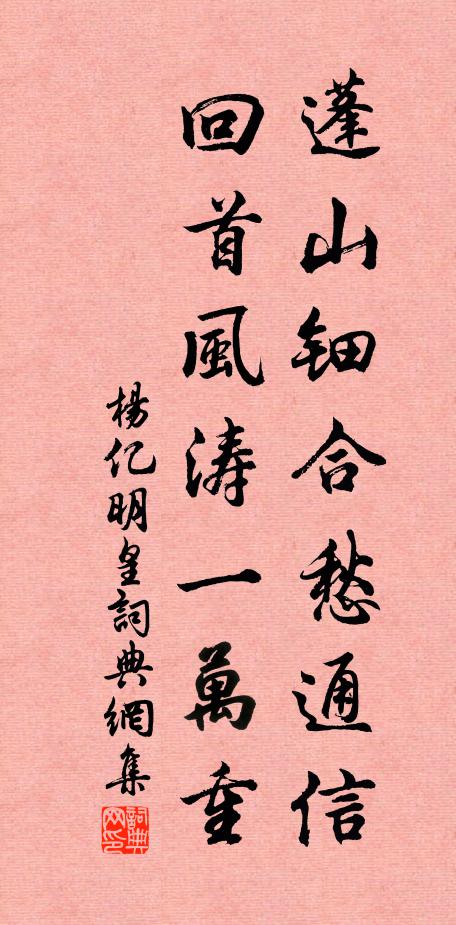 蓬山钿合愁通信
回首風涛一萬重
楊亿明皇詞典網集
詞典
网印